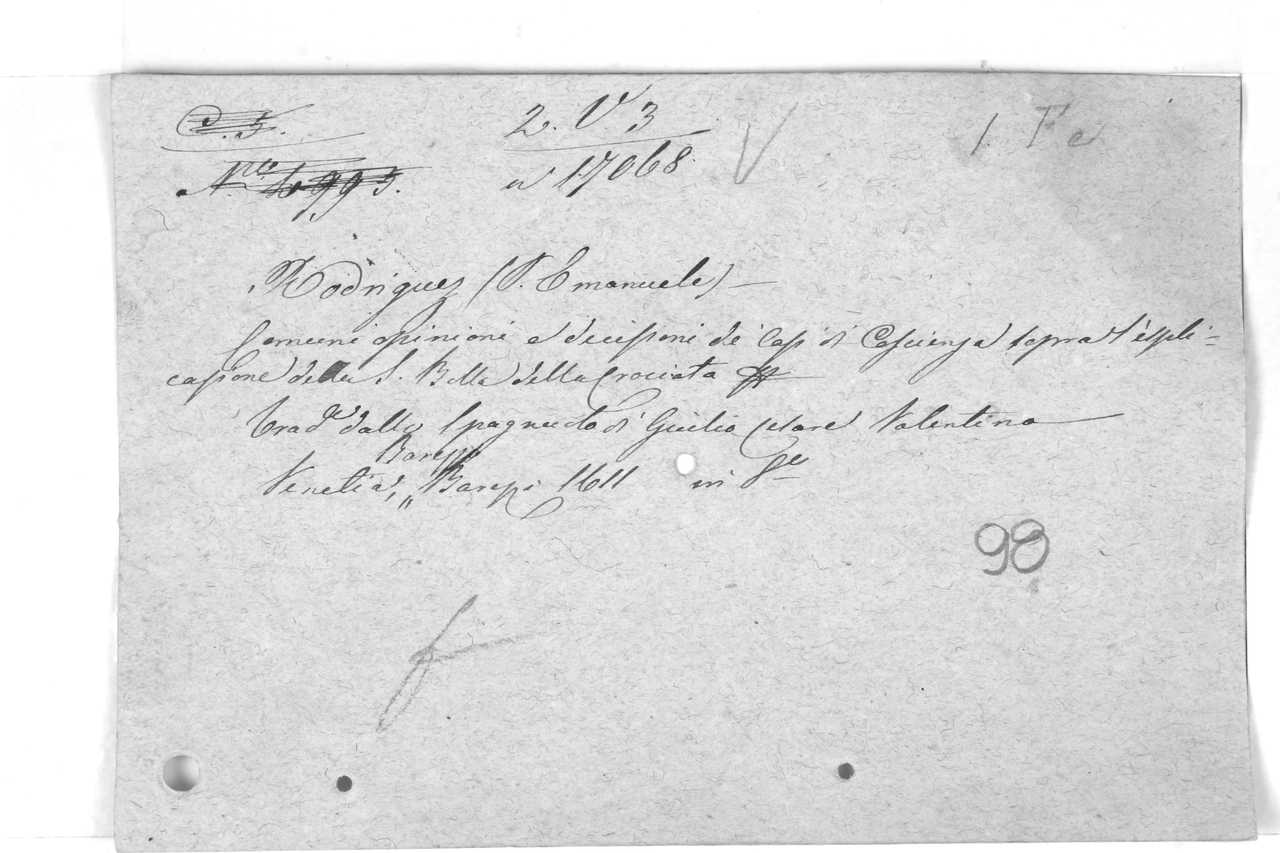 C. 5.
2. V. 3
1. Fa
N.ro 4993.
n 17068.
Rodriguez (P. Emanuele) —
Comuni opinioni e decisioni de' Casi di Coscienza sopra l'espli-
cazione della S. Bolla della Crociata
Trad. dallo Spagnuolo di Giulio Cesare Valentino
Barezzi
Venetia, Barezzi 1611 in 8°
98
f